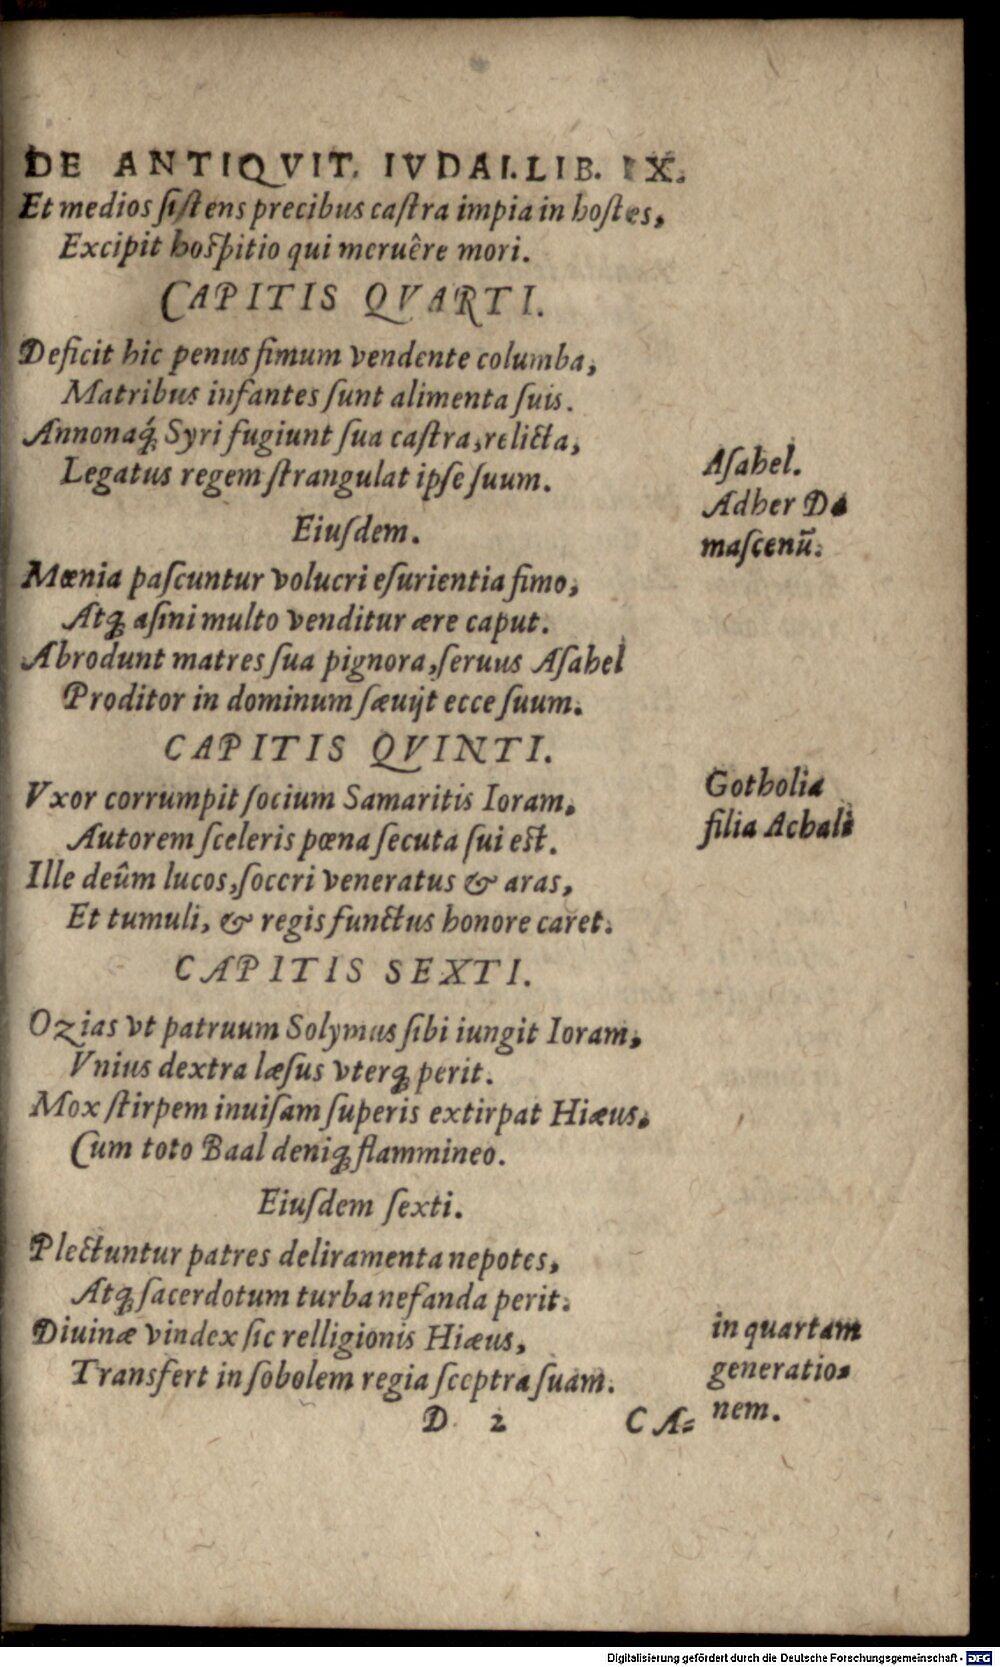 DE ANTIQVIT. IVDAI. LIB. IX.
Et medios ſiſtens precibus caſtra impia in hoſtes,
Excipit hoſpitio qui meruêre mori.
CAPITIS QVARTI.
Deficit hic penus fimum vendente columba,
Matribus infantes ſunt alimenta ſuis.
Annonaq́; Syri fugiunt ſua caſtra, relicta,
Legatus regem ſtrangulat ipſe ſuum.
Aſahel.
Adher Da
maſcenũ.
Eiuſdem.
Mœnia paſcuntur volucri eſurientia fimo,
Atq; aſini multo venditur ære caput.
Abrodunt matres ſua pignora, ſeruus Aſahel
Proditor in dominum ſæuijt ecce ſuum.
CAPITIS QVINTI.
Vxor corrumpit ſocium Samaritis Ioram,
Autorem ſceleris pœna ſecuta ſui eſt.
Ille deûm lucos, ſoceri veneratus & aras,
Et tumuli, & regis functus honore caret.
Gotholia
filia Achabi
CAPITIS SEXTI.
Ozias vt patruum Solymus ſibi iungit Ioram,
Vnius dextra læſus vterq; perit.
Mox ſtirpem inuiſam ſuperis extirpat Hiæus,
Cum toto Baal deniq; flammineo.
Eiuſdem ſexti.
Plectuntur patres deliramenta nepotes,
Atq; ſacerdotum turba nefanda perit.
Diuinæ vindex ſic relligionis Hiæus,
Transfert in ſobolem regia ſceptra ſuam.
in quartam
generatio⸗
nem.
D 2
CA⸗
Digitalisierung gefördert durch die Deutsche Forschungsgemeinschaft - DFG